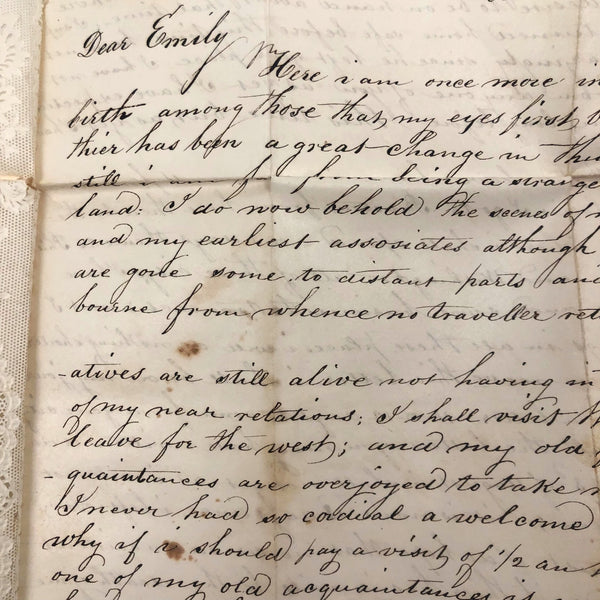 Dear Emily
Here i am once more in
birth among those that my eyes first
thier has been a great change in this
still i am far from being a strange
land: I do now behold the scenes of
and my earliest assosiates although
are gone some to distant parts and
bourne from whence no traveller ret
-atives are still alive not having in
of my near relations; I shall visit
leave for the west; and my old
-quaintances are overjoyed to take
I never had so cordial a welcome
why if i should pay a visit of 1/2 an
one of my old acquaintances is